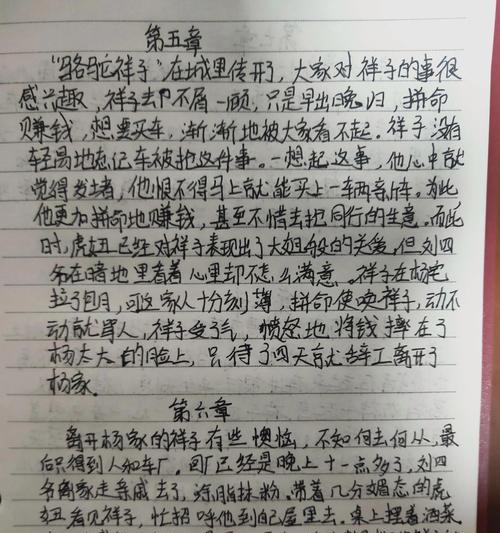 第五章
“骆驼祥子”在城里传开了,大家对祥子的事很
感兴趣,祥子却不屑一顾,只是早出晚归,拼命
赚钱,想要买车,渐渐地被大家看不起。祥子没有
轻易地忘记车被抢这件事。一想起这事,他心中就
觉得发堵,他恨不得马上就能买上一车两辆车。为此
他更加拼命地赚钱,甚至不惜去抢同行的生意。而此
时,虎妞已经对祥子表现出了大姐般的关爱,但刘四
爷在暗地里看着心里却不怎么满意。祥子在杨宅
拉了包月,可这家人十分刻薄,拼命使唤祥子,动不
动就骂人,祥子受了气,愤怒地将钱摔在了
杨太太的脸上,只待了四天就辞工离开了
杨家。
第六章
离开杨家的祥子有些懊恼,不知何去何从,最
后只得到人和车厂。回厂已经是晚上十一点多了,刘四
爷离家走亲戚去了,涂脂抹粉、带着几分媚态的虎
妞看见祥子,忙招呼他到自己屋里去。桌上摆着酒菜